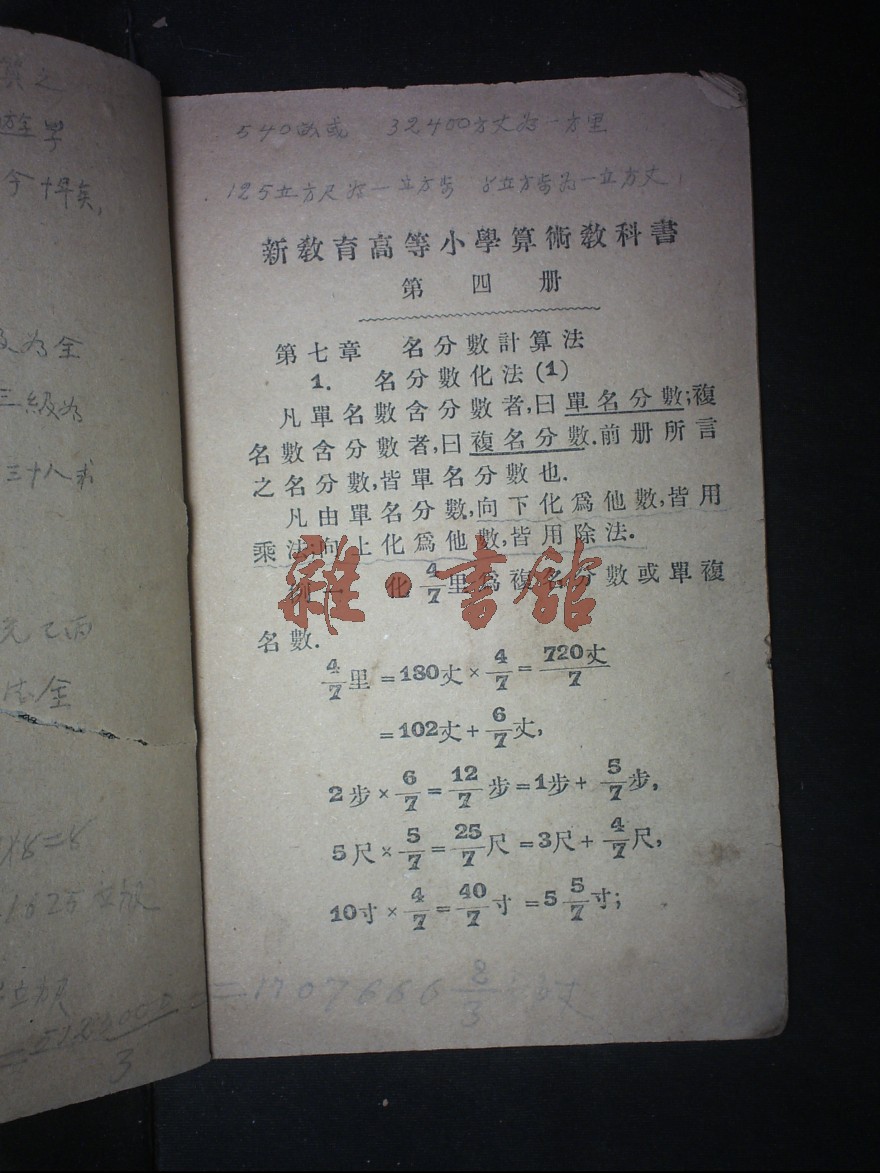 540畝或 32400方丈为一方里
125立方尺为一立方步 8立方步为一立方丈
新教育高等小學算術教科書
第四册
第七章 名分數計算法
1. 名分數化法(1)
凡單名數含分數者,曰單名分數;複
名數含分數者,曰複名分數.前册所言
之名分數,皆單名分數也.
凡由單名分數,向下化爲他數,皆用
乘法;向上化爲他數,皆用除法.
例一 化4/7里爲複名分數或單複
名數.
4/7里=180丈×4/7=720丈/7
=102丈+6/7丈,
2步×6/7=12/7步=1步+5/7步,
5尺×5/7=25/7尺=3尺+4/7尺,
10寸×4/7=40/7寸=5 5/7寸;
=1707666 2/3
雜·書館
为全
三級为
三十八求